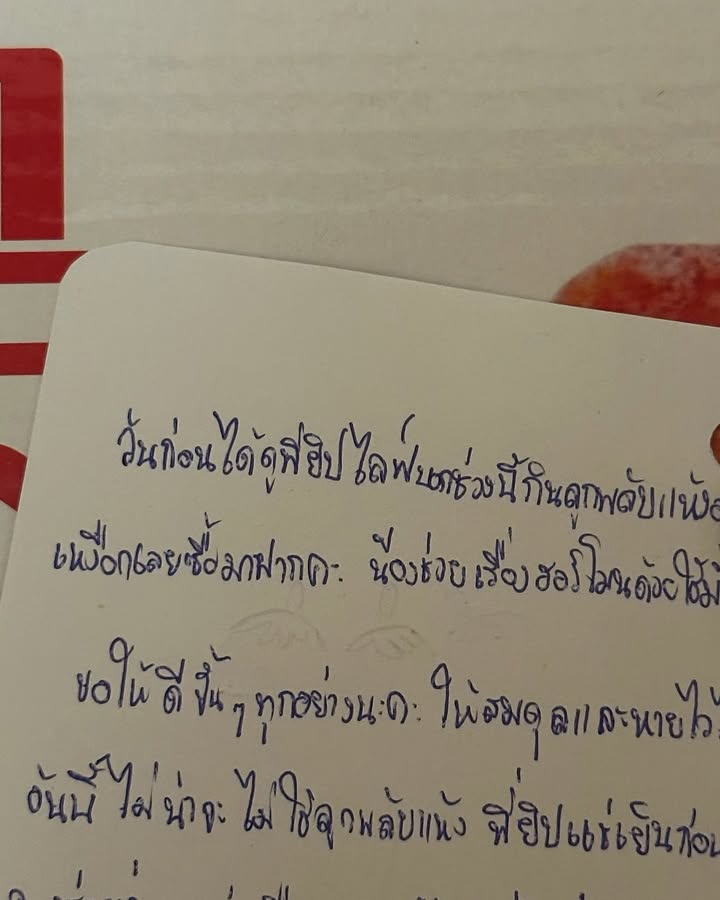 วันก่อนได้ดูพี่ยิปไลฟ์บอกช่วงนี้กินลูกพลับแห้ง
เหงือกเลยซื้อมาฝากคะ น้องช่วยเรื่องฮอร์โมนด้วยใช้มั้
ขอให้ดีขึ้นๆทุกอย่างนะคะ ให้สมดุลและหายไว
อันนี้ไม่น่าจะไม่ใช่ลูกพลับแห้ง พี่ยิปแช่เย็นก่อน